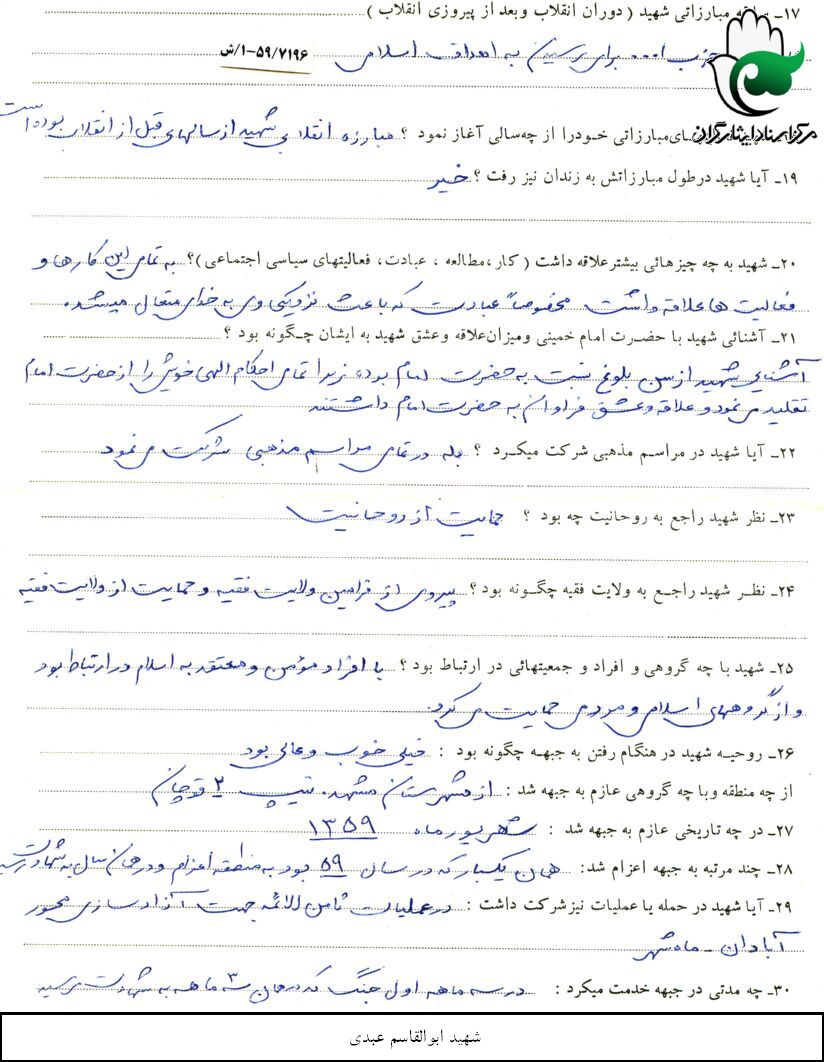 ۱۷ـ سابقه مبارزاتی شهید ( دوران انقلاب وبعد از پیروزی انقلاب )
حزب ا... برای رسیدن به اهداف اسلامی
۱-۵۹/۷۱۹۶/ش
مرکز اسناد ایثارگران
های مبارزاتی خودرا از چه‌سالی آغاز نمود ؟ مبارزه انقلابی شهید از سالهای قبل از انقلاب بوده است
۱۹ـ آیا شهید درطول مبارزاتش به زندان نیز رفت ؟ خیر
۲۰ـ شهید به چه چیزهائی بیشترعلاقه داشت ( کار ،مطالعه ، عبادت، فعالیتهای سیاسی اجتماعی )؟ به تمامی این کارها و
فعالیت ها علاقه داشت مخصوصاً عبادت که باعث نزدیکی وی به خدای متعال میشد.
۲۱ـ آشنائی شهید با حضرت امام خمینی ومیزان‌علاقه وعشق شهید به ایشان چگونه بود ؟
آشنایی شهید از سن بلوغ نسبت به حضرت امام بوده زیرا تمامی احکام الهی خویش را از حضرت امام
تقلید می نمود و علاقه و عشق فراوان به حضرت امام داشتند
۲۲ـ آیا شهید در مراسم مذهبی شرکت میکرد ؟ بله در تمامی مراسم مذهبی شرکت می نمود
۲۳ـ نظر شهید راجع به روحانیت چه بود ؟ حمایت از روحانیت
۲۴ـ نظر شهید راجع به ولایت فقیه چگونه بود ؟ پیروی از فرامین ولایت فقیه و حمایت از ولایت فقیه
۲۵ـ شهید با چه گروهی و افراد و جمعیتهائی در ارتباط بود ؟ با افراد مؤمن و معتقد به اسلام در ارتباط بود
و از گروههای اسلامی و مردمی حمایت می کرد.
۲۶ـ روحیه شهید در هنگام رفتن به جبهه چگونه بود : خیلی خوب و عالی بود
از چه منطقه وبا چه گروهی عازم به جبهه شد : از شهرستان مشهد. تیپ ۲ قوچان
۲۷ـ در چه تاریخی عازم به جبهه شد : شهریور ماه ۱۳۵۹
۲۸ـ چند مرتبه به جبهه اعزام شد: همان یکبار که در سال ۵۹ بود به منطقه اعزام و در همان سال به شهادت رسید
۲۹ـ آیا شهید در حمله یا عملیات نیزشرکت داشت : در عملیات ثامن الائمه جهت آزادسازی محور
آبادان ـ ماهشهر
۳۰ـ چه مدتی در جبهه خدمت میکرد : در سه ماهه اول جنگ که در همان ۳ ماهه به شهادت رسید
شهید ابوالقاسم عبدی